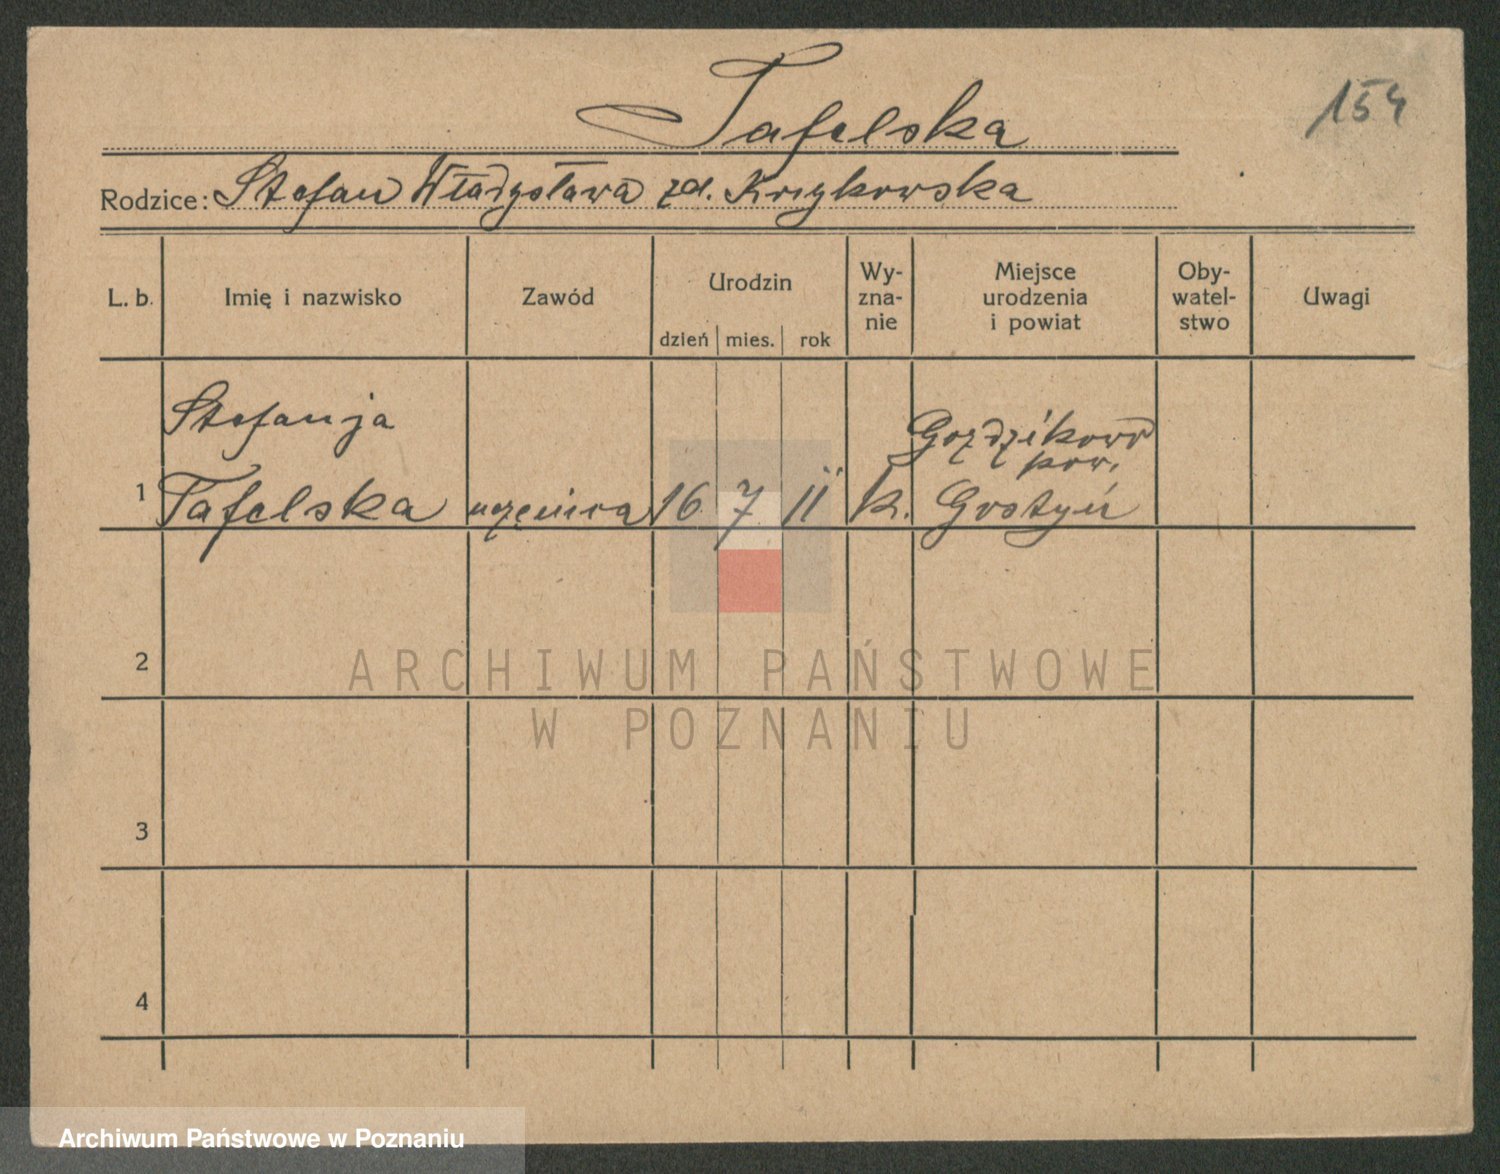 Tafelska
154
Rodzice: Stefan Władysława zd. Krzykowska
L. b. Imię i nazwisko Zawód Urodzin dzień mies. rok Wy-zna-nie Miejsce urodzenia i powiat Oby-watel-stwo Uwagi
Stefanja Goździkowo
pow.
1 Tafelska uczenica 16 7 11 k. Gostyń
2
ARCHIWUM PAŃSTWOWE
W POZNANIU
3
4
Archiwum Państwowe w Poznaniu